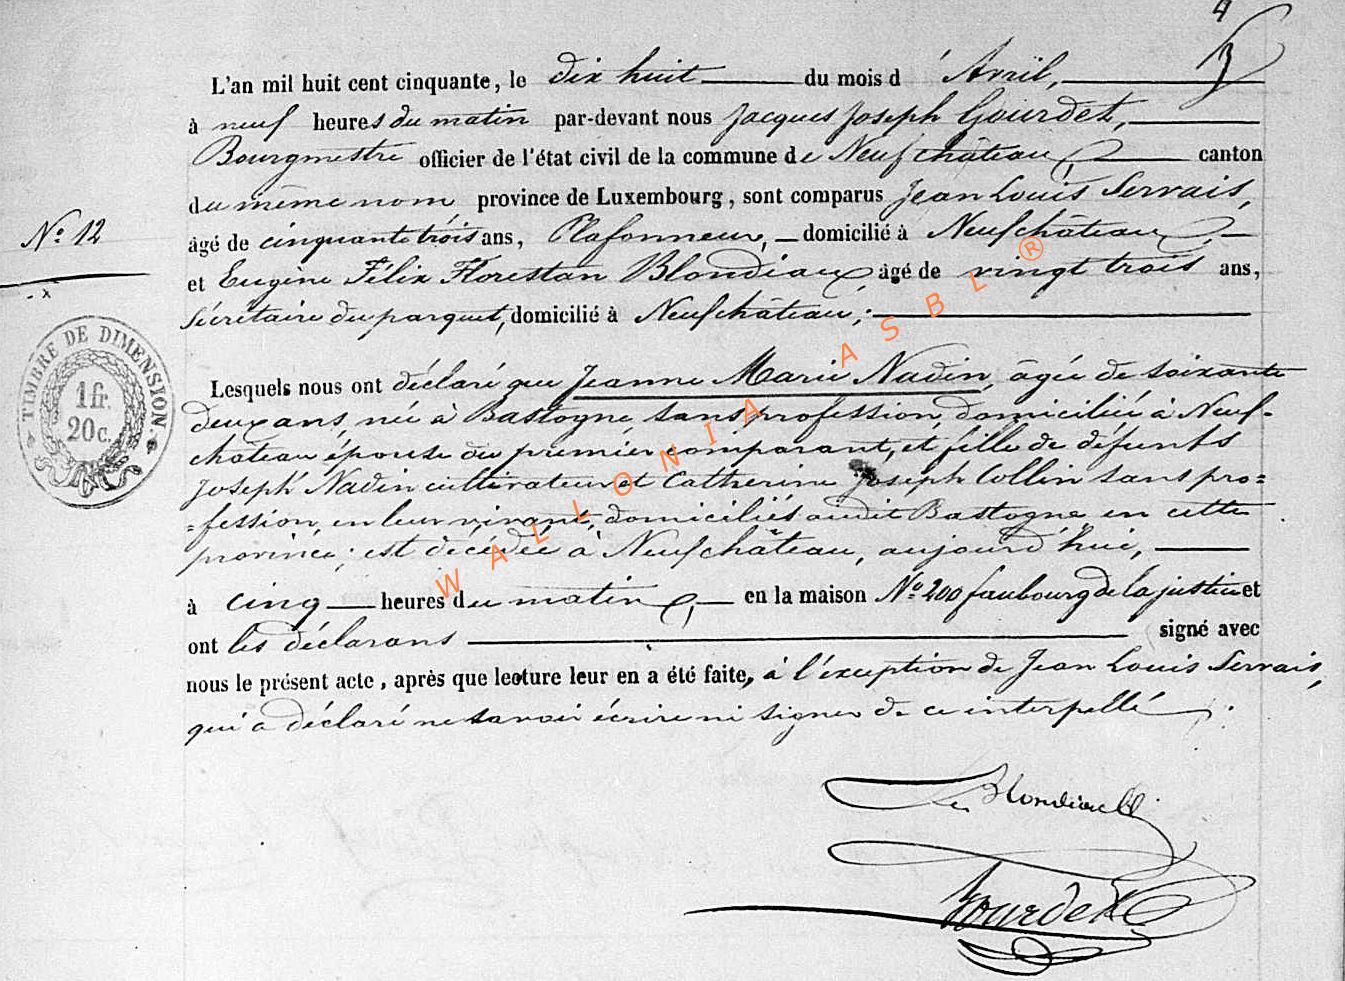 4
L'an mil huit cent cinquante, le dix huit du mois d'Avril,
à neuf heures du matin par-devant nous Jacques Joseph Gourdet,
Bourgmestre officier de l'état civil de la commune de Neufchâteau, canton
du même nom province de Luxembourg, sont comparus Jean Louis Servais,
N.º 12
âgé de cinquante trois ans, Plafonneur, domicilié à Neufchâteau,
et Eugène Félix Florestan Blondiaux, âgé de vingt trois ans,
Sécrétaire du parquet, domicilié à Neufchâteau;
TIMBRE DE DIMENSION.
1 fr.
20 c.
Lesquels nous ont déclaré que Jeanne Marie Nadin, âgée de soixante
deux ans, née à Bastogne, sans profession, domiciliée à Neuf-
château épouse du premier comparant, et fille de défunts
Joseph Nadin cultivateur et Catherine Joseph Collin sans pro=
=fession, en leur vivant, domiciliés audit Bastogne en cette
province; est décédée à Neufchâteau, aujourd'hui,
à cinq heures du matin, en la maison N.º 200 faubourg de la justice et
ont les déclarans signé avec
nous le présent acte, après que lecture leur en a été faite, à l'exception de Jean Louis Servais,
qui a déclaré ne savoir écrire ni signer de ce interpellé.
Blondiau
Gourdet
WALLONIA ASBL ®